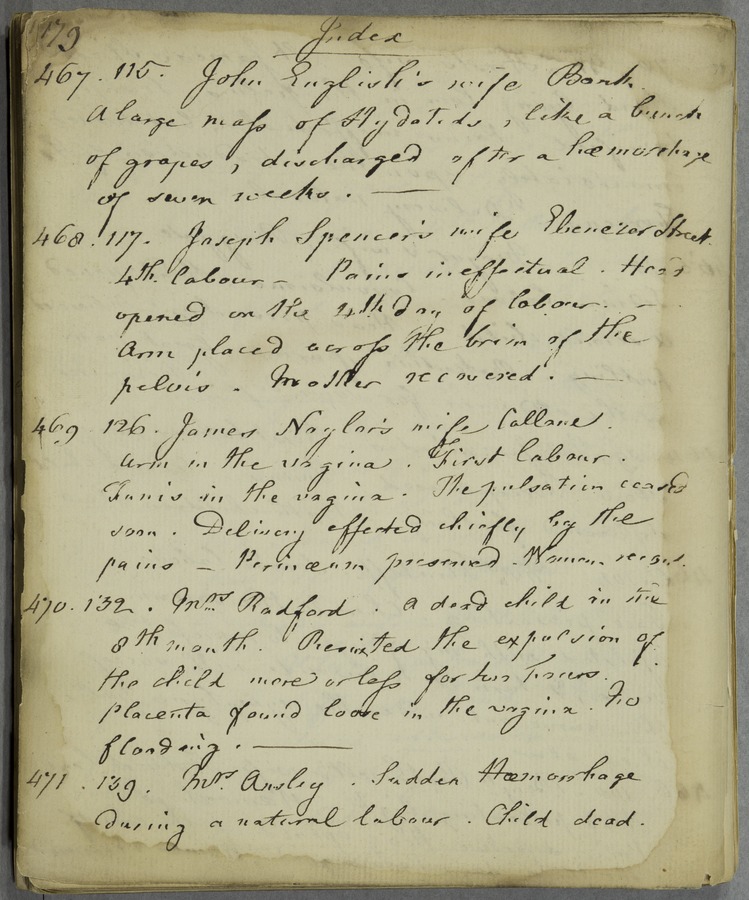 179
Index
467. 115. John English's wife Bank.
A large mass of Hydatids, like a bunch
of grapes, discharged after a hæmorrhage
of seven weeks. —
468. 117. Joseph Spencer's wife Ebenezer Street.
4th labour – Pains ineffectual. Head
opened on the 4th day of labour. —
Arm placed across the brim of the
pelvis. Mother recovered. —
469 126. James Naylor's wife
Arm in the vagina. First labour.
Funis in the vagina. The pulsation ceased
soon. Delivery effected chiefly by the
pains – Perinæum preserved. Woman recov.
470. 132. Mrs Radford. A dead child in the
8th month. Resisted the expulsion of
the child more or less for two hours.
Placenta found loose in the vagina. No
flooding. —
471. 139. Mrs. Ansley. Sudden Hæmorrhage
during a natural labour. Child dead.